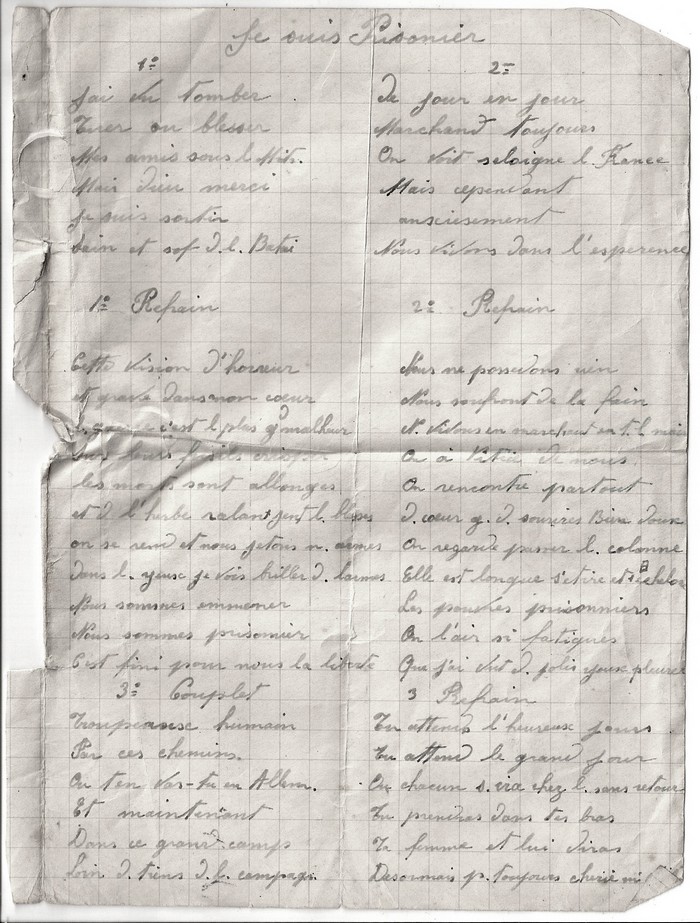 Je suis Prisonier
1º
J'ai vu tomber
Tirer ou blesser
Mes amis sous l. Mitr.
Mais dieu merci
Je suis sortir
Sain et sof d. l. Batai
1º Refrain
Cette vision d'horreur
et gravé dans mon cœur
c'est l. plus gd malheur
leurs fusils
les morts sont allongés
et d. l'herbe ralant l. blesses
on se rend et nous jetons n. armes
dans l. yeux je vois briller d. larmes
Nous sommes emmener
Nous sommes prisonier
C'est fini pour nous la liberté
3º Couplet
Troupeause humain
Par ces chemins.
Ou t'en vas-tu en Allem.
Et maintenant
Dans ce grand camp
Loin d. tiens d. l. campagn.
2º
De jour en jour
Marchand toujours
On voit seloigne l. France
Mais cependant
ansciesement
Nous vivons dans l'esperence
2º Refrain
Nous ne possedons rien
Nous soufront de la fain
N. vivons en marchant en t. l. main
On à Pitié de nous
On rencontre partout
d. cœur g. d. sourires Bien doux
On regarde passer l. colonne
Elle est longue s'etire et echelon
Les pauvres prisonniers
On l'air si fatigues
Que j'ai vut d. jolis yeux pleurer
3 Refrain
Tu attends l'heureux jours
Tu attend le grand jour
Ou chacun s. ira chez l. sans retour
Tu prendras dans tes bras
Ta femme et lui diras
Desormais p. toujours cherie